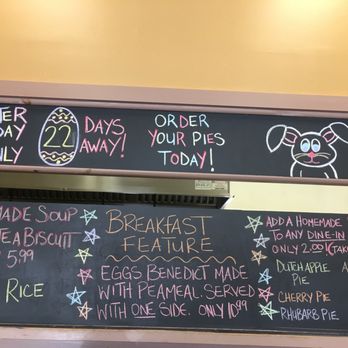 TER
DAY
NLY
22
DAYS
AWAY!
ORDER
YOUR PIES
TODAY!
MADE SOUP
TEA BISCUIT
5.99
RICE
BREAKFAST
FEATURE
EGGS BENEDICT MADE
WITH PEAMEAL. SERVED
WITH ONE SIDE. ONLY 10.99
ADD A HOMEMADE
TO ANY DINE-IN
ONLY 2.00
DUTCH APPLE
PIE
CHERRY PIE
RHUBARB PIE